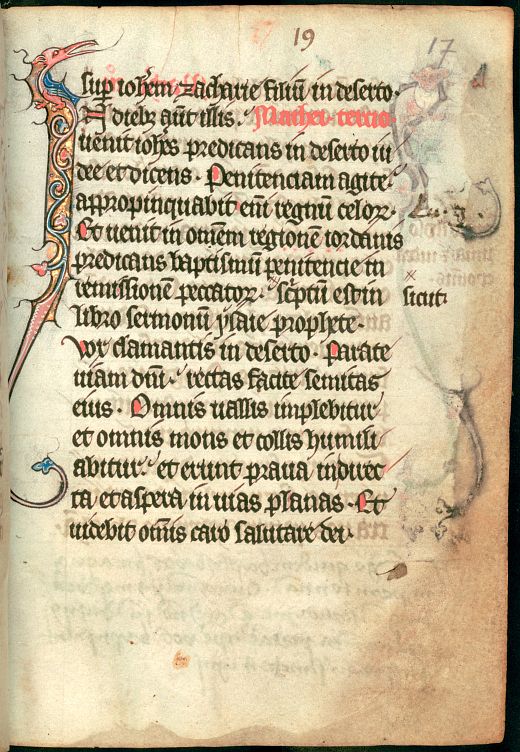 19
17
sup ioh̄em zacharie filiū in deserto.
In dieb; aūt illis. Mathei tercio
uenit ioh̄es predicans in deserto iu
dee et dicens. Penitenciam agite
appropinquabit eni regnū celoꝝ.
Et uenit in omēm regionēm iordanis
predicans baptismū penitencie in
remissionē peccatoꝝ. sc̄ptū est in
sicut
libro sermonū ysaie prophete.
vox clamantis in deserto. Parate
uiam dnī. rectas facite semitas
eius. Omnis uallis implebitur
et omnis mons et collis humili
abitur. et erunt praua in direc
ta et aspera in uias planas. Et
uidebit omīs caro salutare dei.